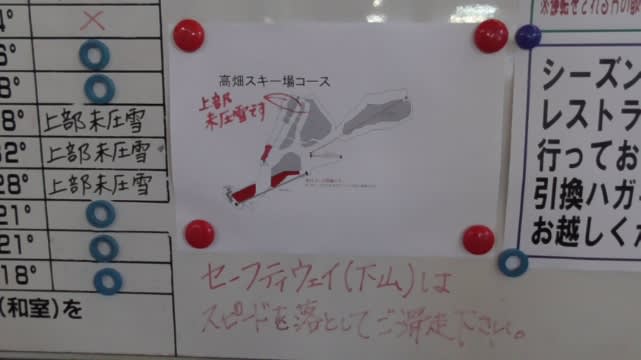 4°
6°
8°
8° 上部未圧雪
32° 上部未圧雪
28° 上部未圧雪
21°
21°
18°
(和室)を
高畑スキー場コース
上部
未圧雪です
セーフティウェイ(下山)は
スピードを落としてご滑走下さい。
シーズン
レストラ
行ってお
引換ハガ
お越しくだ